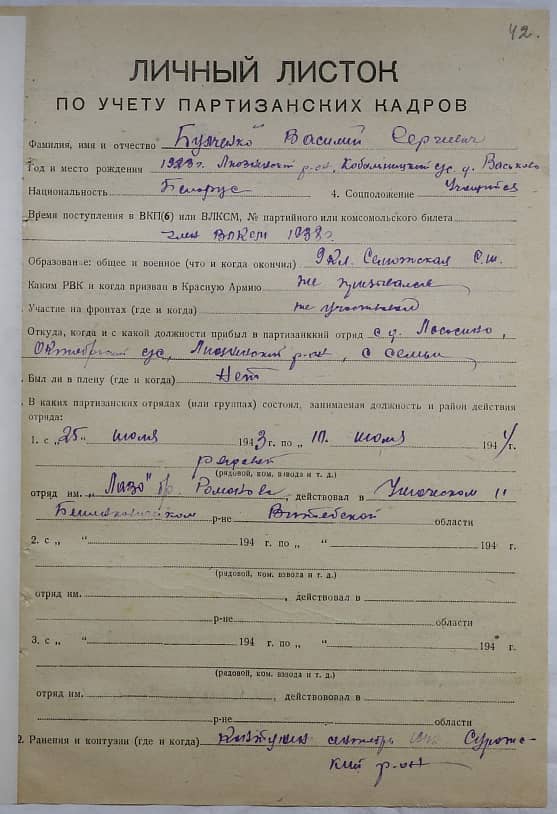 42.
ЛИЧНЫЙ ЛИСТОК
ПО УЧЕТУ ПАРТИЗАНСКИХ КАДРОВ
Фамилия, имя и отчество Василий Сергеевич
Год и место рождения 1923 г. р-он, с/с. д. Васьково
Национальность Белорус 4. Соцположение Учащийся
Время поступления в ВКП(б) или ВЛКСМ, № партийного или комсомольского билета
член ВЛКСМ 1938 г
Образование: общее и военное (что и когда окончил) 9 кл. С.ш.
Каким РВК и когда призван в Красную Армию не призывался
Участие на фронтах (где и когда) не участвовал
Откуда, когда и с какой должности прибыл в партизанкий отряд с д.
Октябрьский с/с, Лиозненский р-он, с семьи
Был ли в плену (где и когда) Нет
В каких партизанских отрядах (или группах) состоял, занимаемая должность и район действия
отряда:
1. с „25“ июля 1943 г. по „10“ июля 1944 г.
рядовой
(рядовой, ком. взвода и т. д.)
отряд им. „Лазо“ бр. Романова, действовал в Ушачском и
Бешенковичском р-не Витебской области
2. с „ “ 194 г. по „ “ 194 г.
(рядовой, ком. взвода и т. д.)
отряд им. , действовал в
р-не области
3. с „ “ 194 г. по „ “ 194 г.
(рядовой, ком. взвода и т. д.)
отряд им. , действововал в
р-не области
2. Ранения и контузии (где и когда) Контузия Суражс-
кий р-он